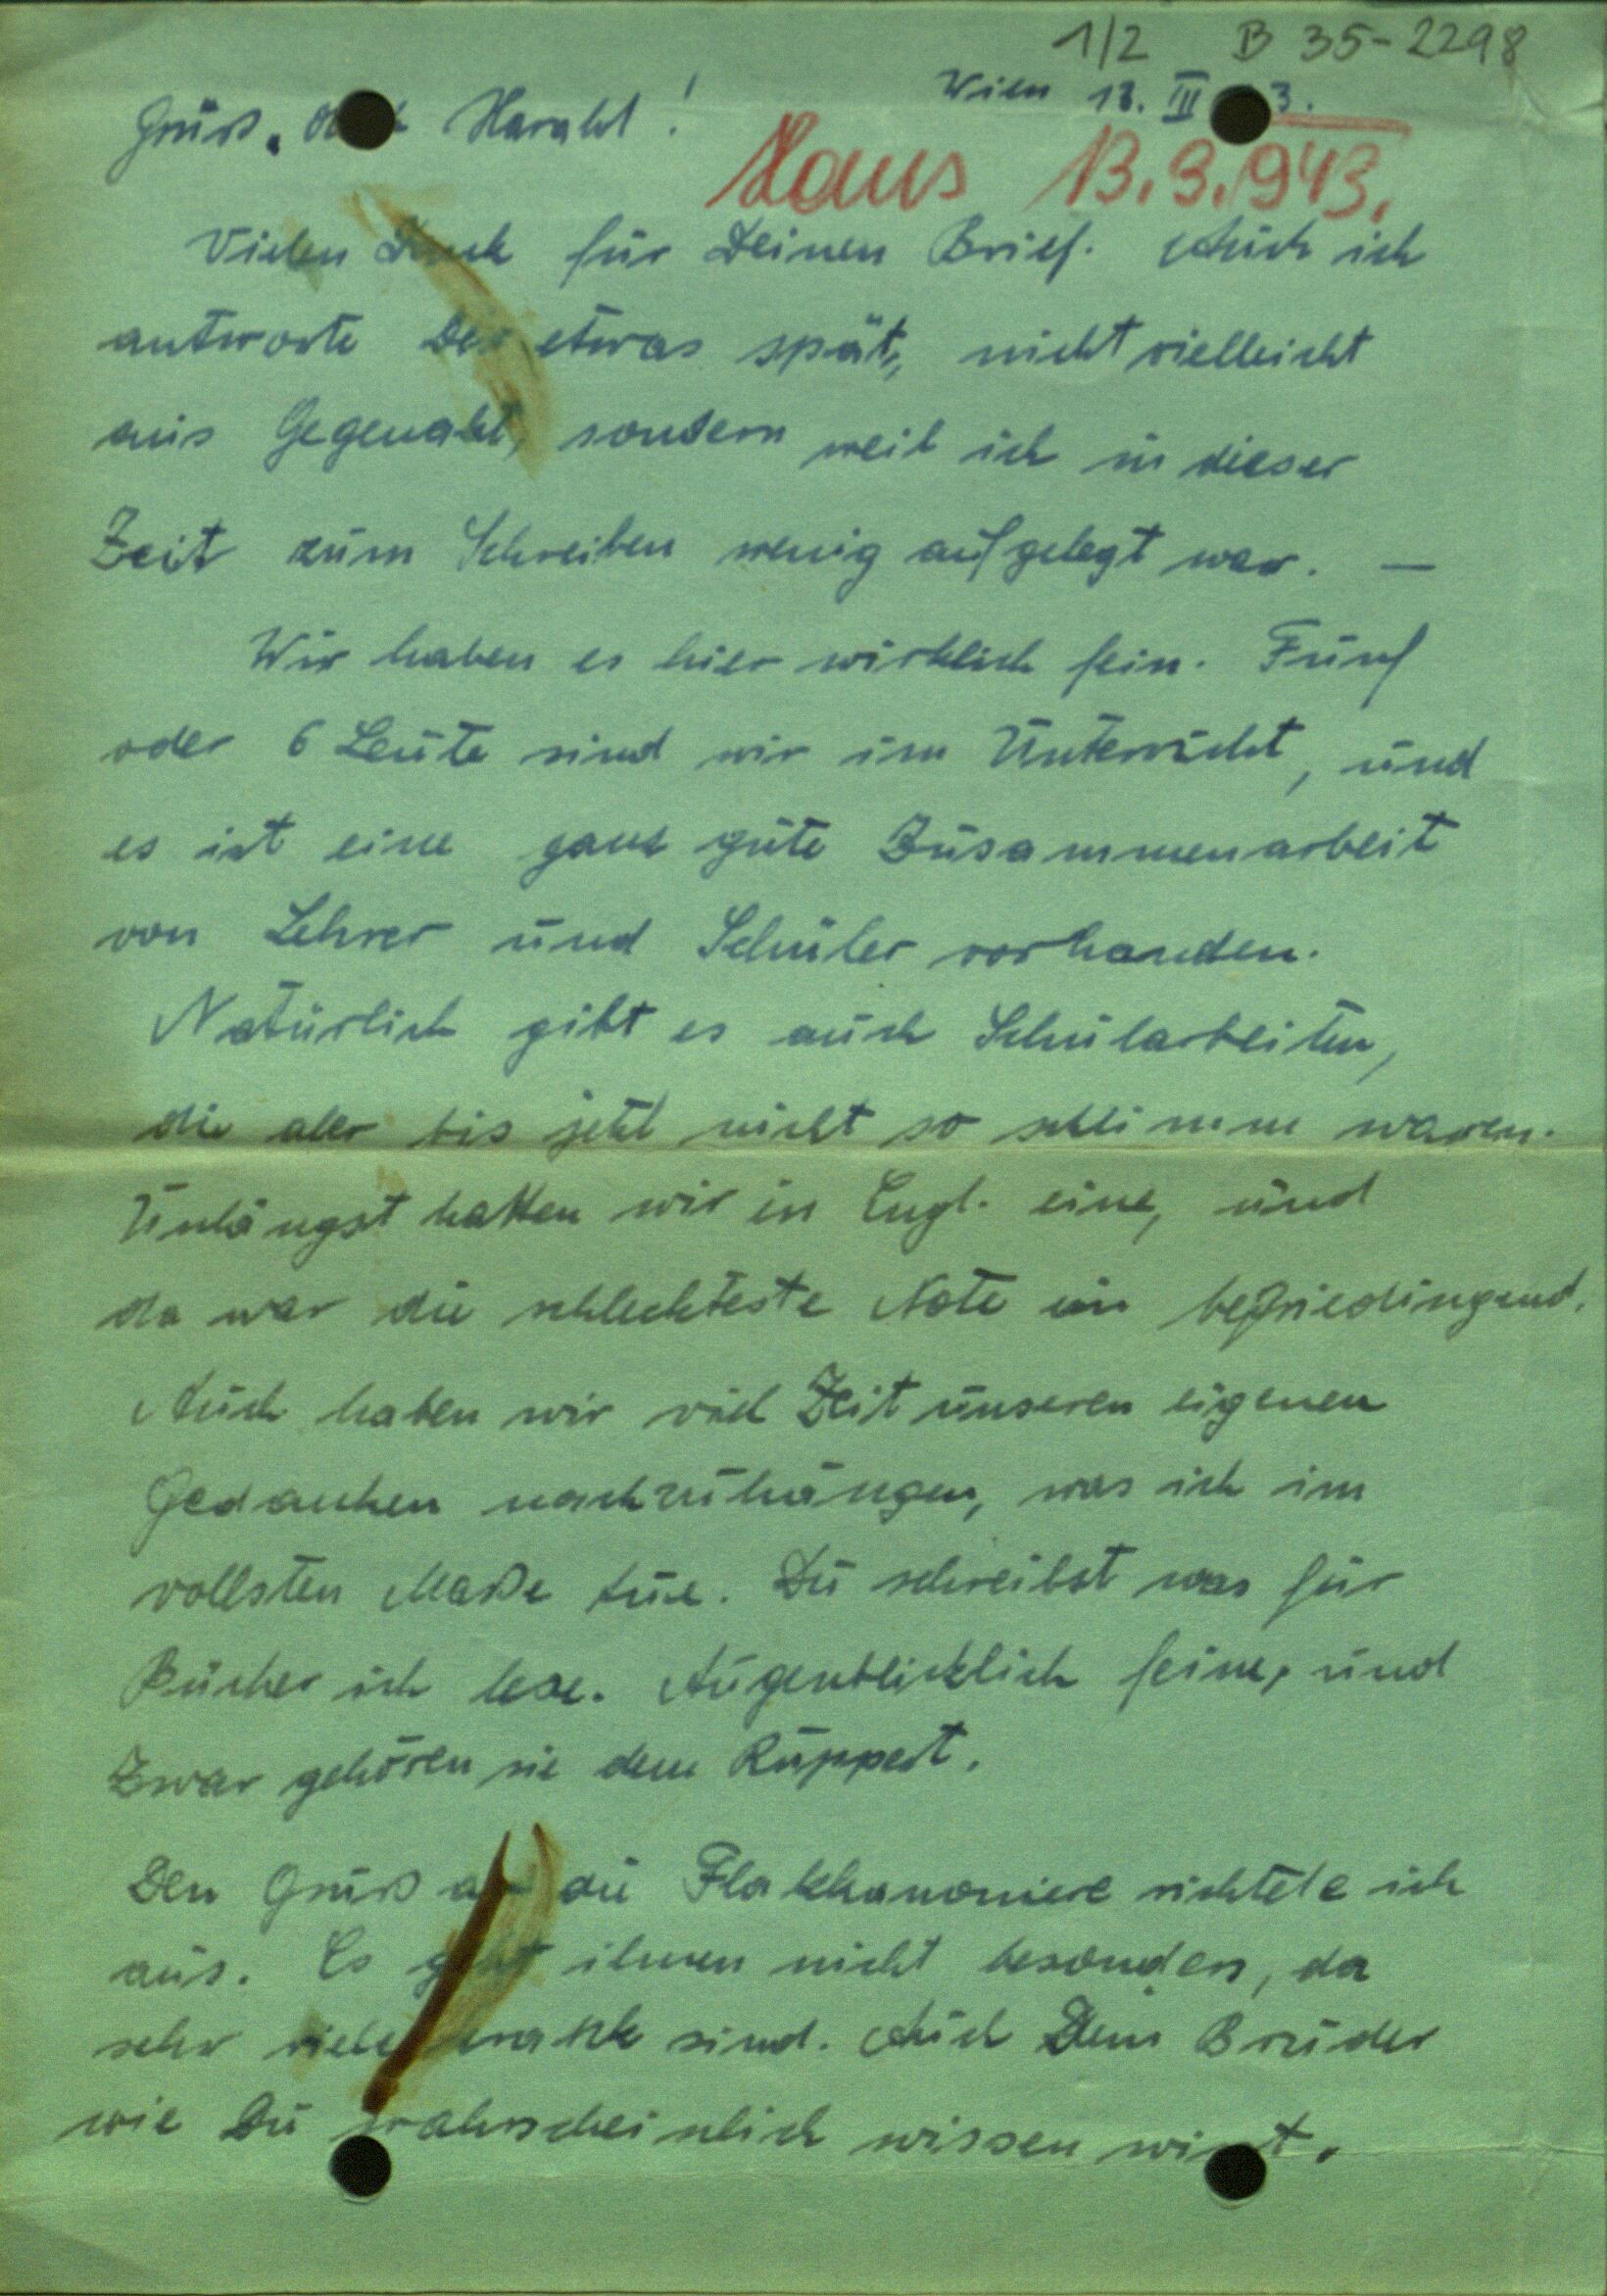 1/2 B 35-2298
Wien 13. III 3.
Grüss. Harald!
Haus 13.3.943.
Vielen Dank für Deinen Brief. Auch ich
antworte etwas spät, nicht vielleicht
aus sondern weil ich in dieser
Zeit zum Schreiben wenig aufgelegt war. —
Wir haben es hier wirklich fein. Fünf
oder 6 Leute sind wir im Unterricht, und
es ist eine ganz gute Zusammenarbeit
von Lehrer und Schüler vorhanden.
Natürlich gibt es auch Schularbeiten,
die aber bis jetzt nicht so schlimm waren.
Unlängst hatten wir in Engl. eine, und
da war die schlechteste Note ein befriedingend.
Auch haben wir viel Zeit unseren eigenen
Gedanken nachzuhängen, was ich im
vollsten Maße tue. Du schreibst was für
Bücher ich lese. Augenblicklich feine, und
Zwar gehören sie dem Ruppert.
Den Gruß an die Flakkanoniere richtete ich
aus. Es geht ihnen nicht besonders, da
sehr viele krank sind. Auch Dein Bruder
wie Du wahrscheinlich wissen wirst.